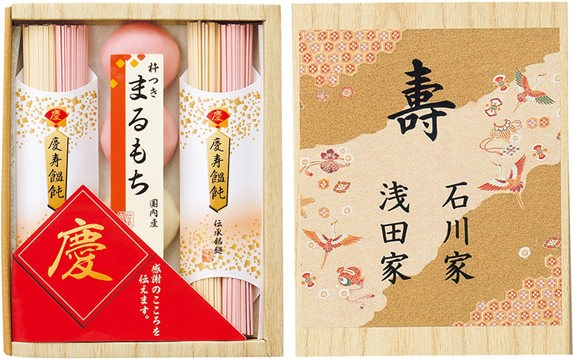 慶
慶寿饂飩
杵つき
まるもち
国内産
慶
慶寿饂飩
伝承銘麺
慶
感謝のこころを
伝えます。
寿
石川家
浅田家